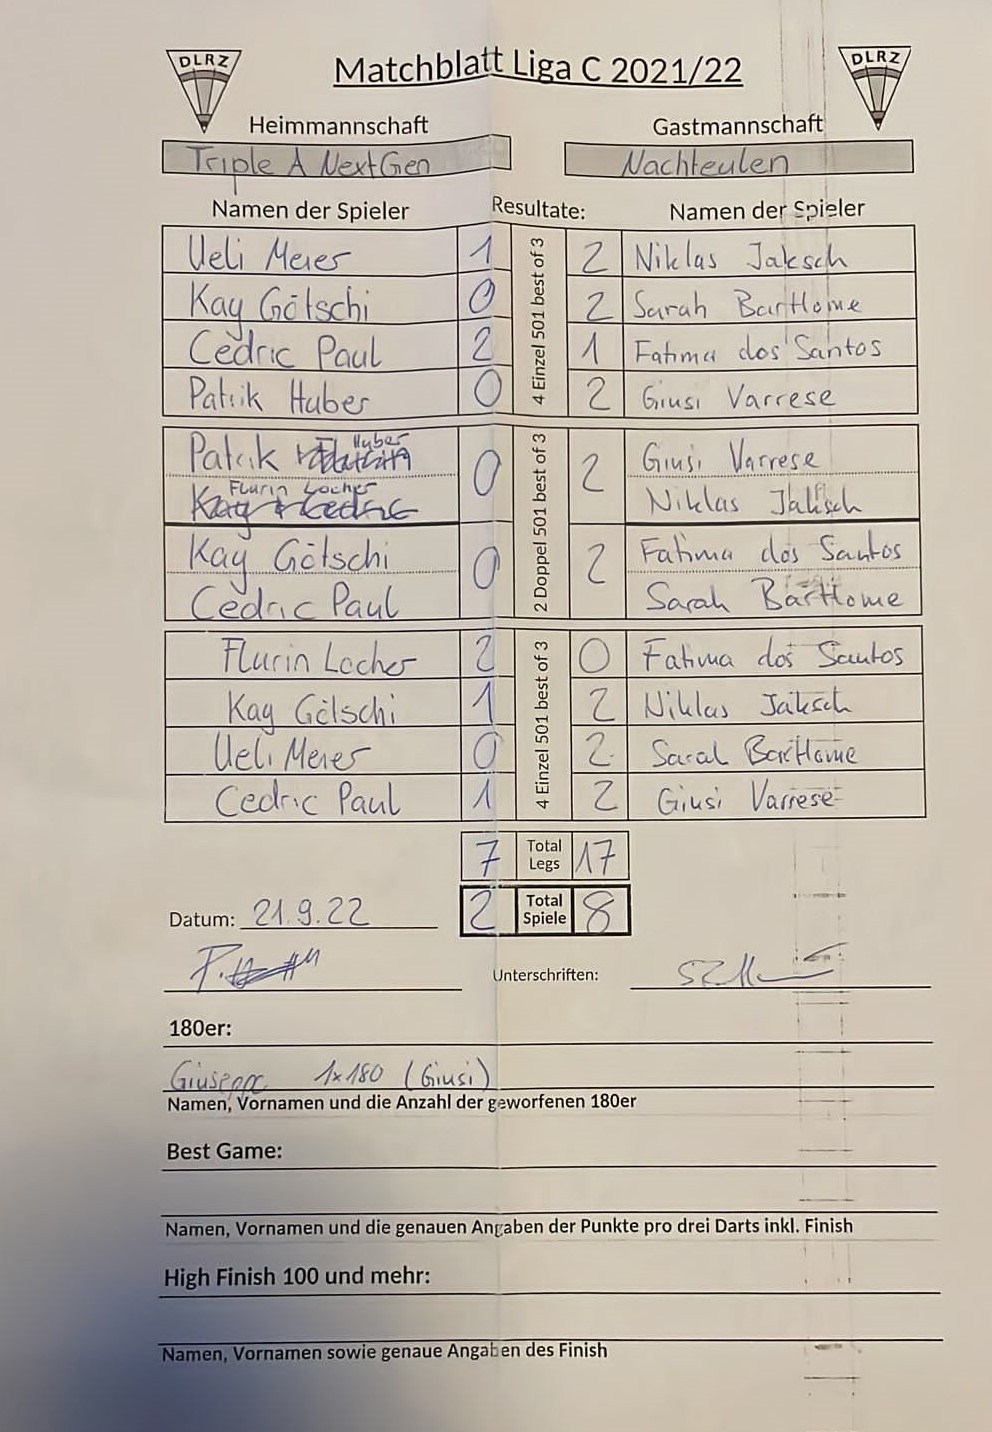 DLRZ Matchblatt Liga C 2021/22 DLRZ
Heimmannschaft Gastmannschaft
Triple A NextGen Nachteulen
Namen der Spieler Resultate: Namen der Spieler
4 Einzel 501 best of 3
Ueli Meier 1 2 Niklas Jaksch
Kay Götschi 0 2 Sarah Barthome
Cedric Paul 2 1 Fatima dos Santos
Patrik Huber 0 2 Giusi Varrese
2 Doppel 501 best of 3
Patrik Huber 0 2 Giusi Varrese
Flurin Locher Niklas Jaksch
Kay + Cedric
Kay Götschi 0 2 Fatima dos Santos
Cedric Paul Sarah Barthome
4 Einzel 501 best of 3
Flurin Locher 2 0 Fatima dos Santos
Kay Götschi 1 2 Niklas Jaksch
Ueli Meier 0 2 Sarah Barthome
Cedric Paul 1 2 Giusi Varrese
7 Total Legs 17
Datum: 21.9.22 2 Total Spiele 8
Unterschriften:
180er:
Giuseppe 1x180 (Giusi)
Namen, Vornamen und die Anzahl der geworfenen 180er
Best Game:
Namen, Vornamen und die genauen Angaben der Punkte pro drei Darts inkl. Finish
High Finish 100 und mehr:
Namen, Vornamen sowie genaue Angaben des Finish